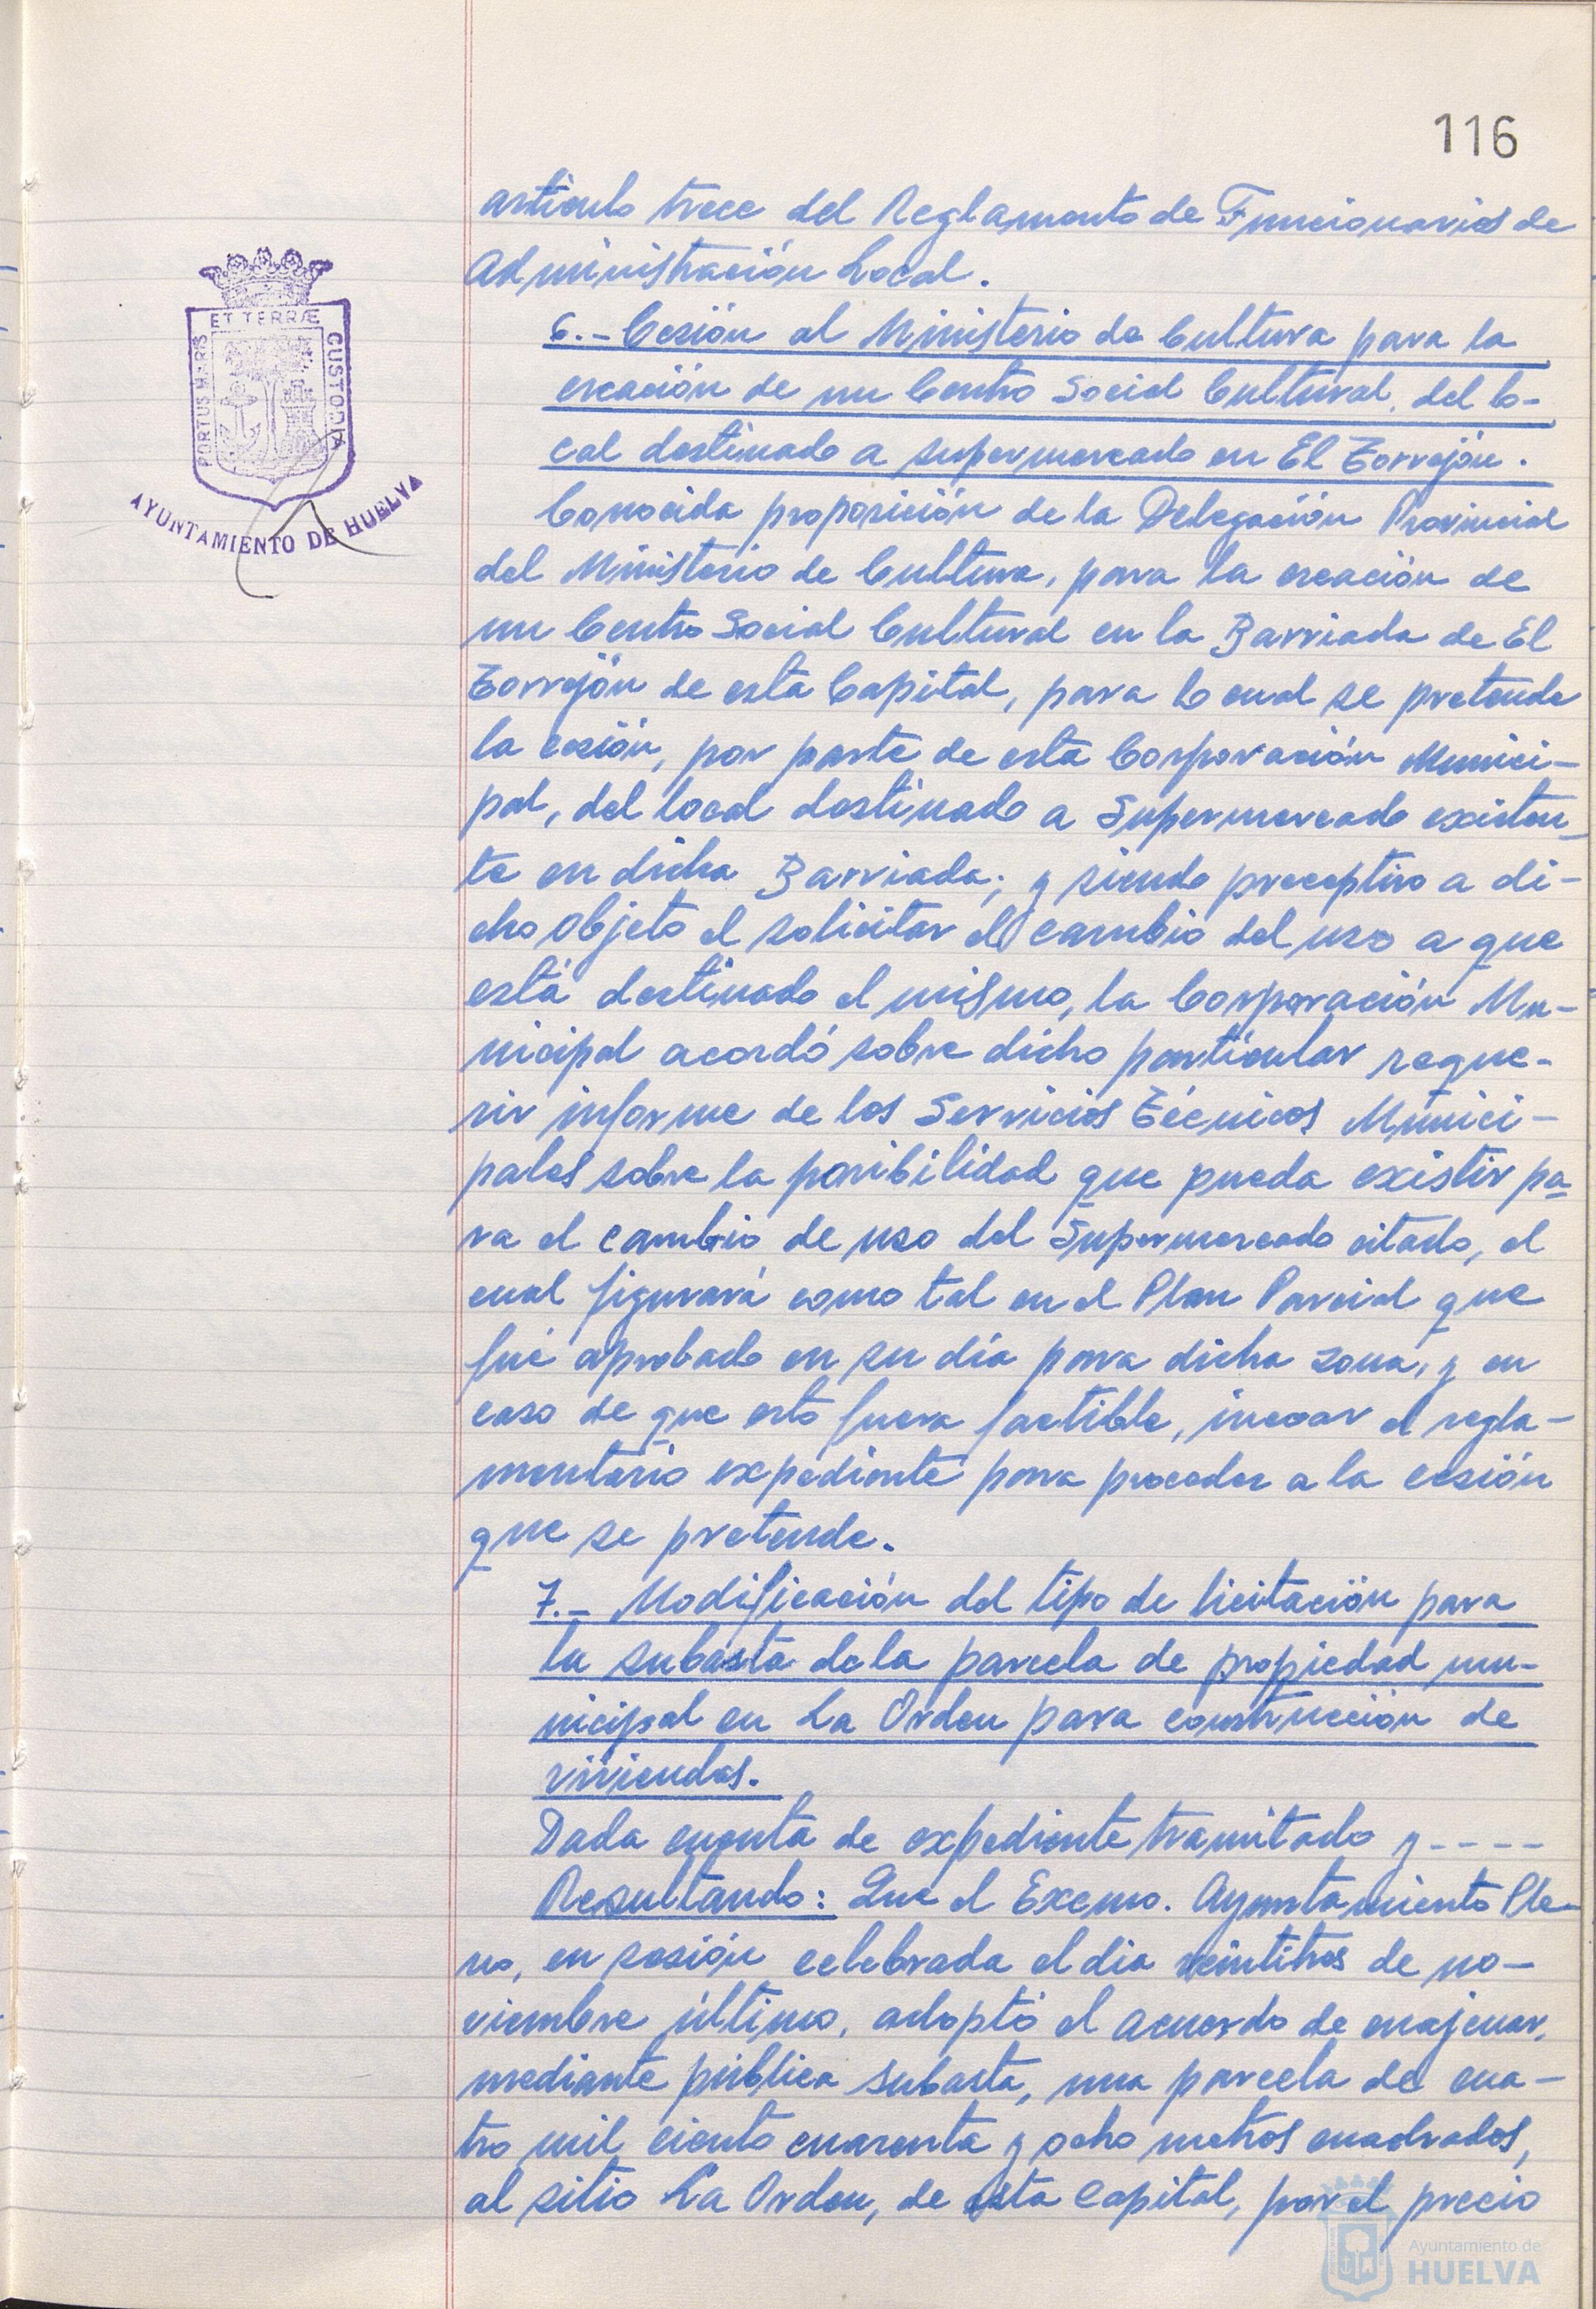 116
artículo trece del Reglamento de Funcionarios de
Administración Local.
6.- Cesión al Ministerio de Cultura para la
creación de un Centro Social Cultural, del lo-
cal destinado a supermercado en El Torrejón.
Conocida proposición de la Delegación Provincial
del Ministerio de Cultura, para la creación de
un Centro Social Cultural en la Barriada de El
Torrejón de esta Capital, para lo cual se pretende
la cesión, por parte de esta Corporación Munici-
pal, del local destinado a Supermercado existen-
te en dicha Barriada; y siendo preceptivo a di-
cho objeto el solicitar el cambio del uso a que
está destinado el mismo, la Corporación Mu-
nicipal acordó sobre dicho particular reque-
rir informe de los Servicios Técnicos Munici-
pales sobre la posibilidad que pueda existir pa-
ra el cambio de uso del Supermercado citado, el
cual figurará como tal en el Plan Parcial que
fué aprobado en su día para dicha zona, y en
caso de que esto fuera factible, incoar el regla-
mentario expediente para proceder a la cesión
que se pretende.
7.- Modificación del tipo de licitación para
la subasta de la parcela de propiedad mu-
nicipal en La Orden para construcción de
viviendas.
Dada cuenta de expediente tramitado y ----
Resultando: Que el Excmo. Ayuntamiento Ple-
no, en sesión celebrada el dia veintitres de no-
viembre último, adoptó el acuerdo de enajenar,
mediante pública subasta, una parcela de cua-
tro mil ciento cuarenta y ocho metros cuadrados,
al sitio La Orden, de esta Capital, por el precio
PORTUS MARIS
ET TERRÆ
CUSTODIA
AYUNTAMIENTO DE HUELVA
Ayuntamiento de
HUELVA